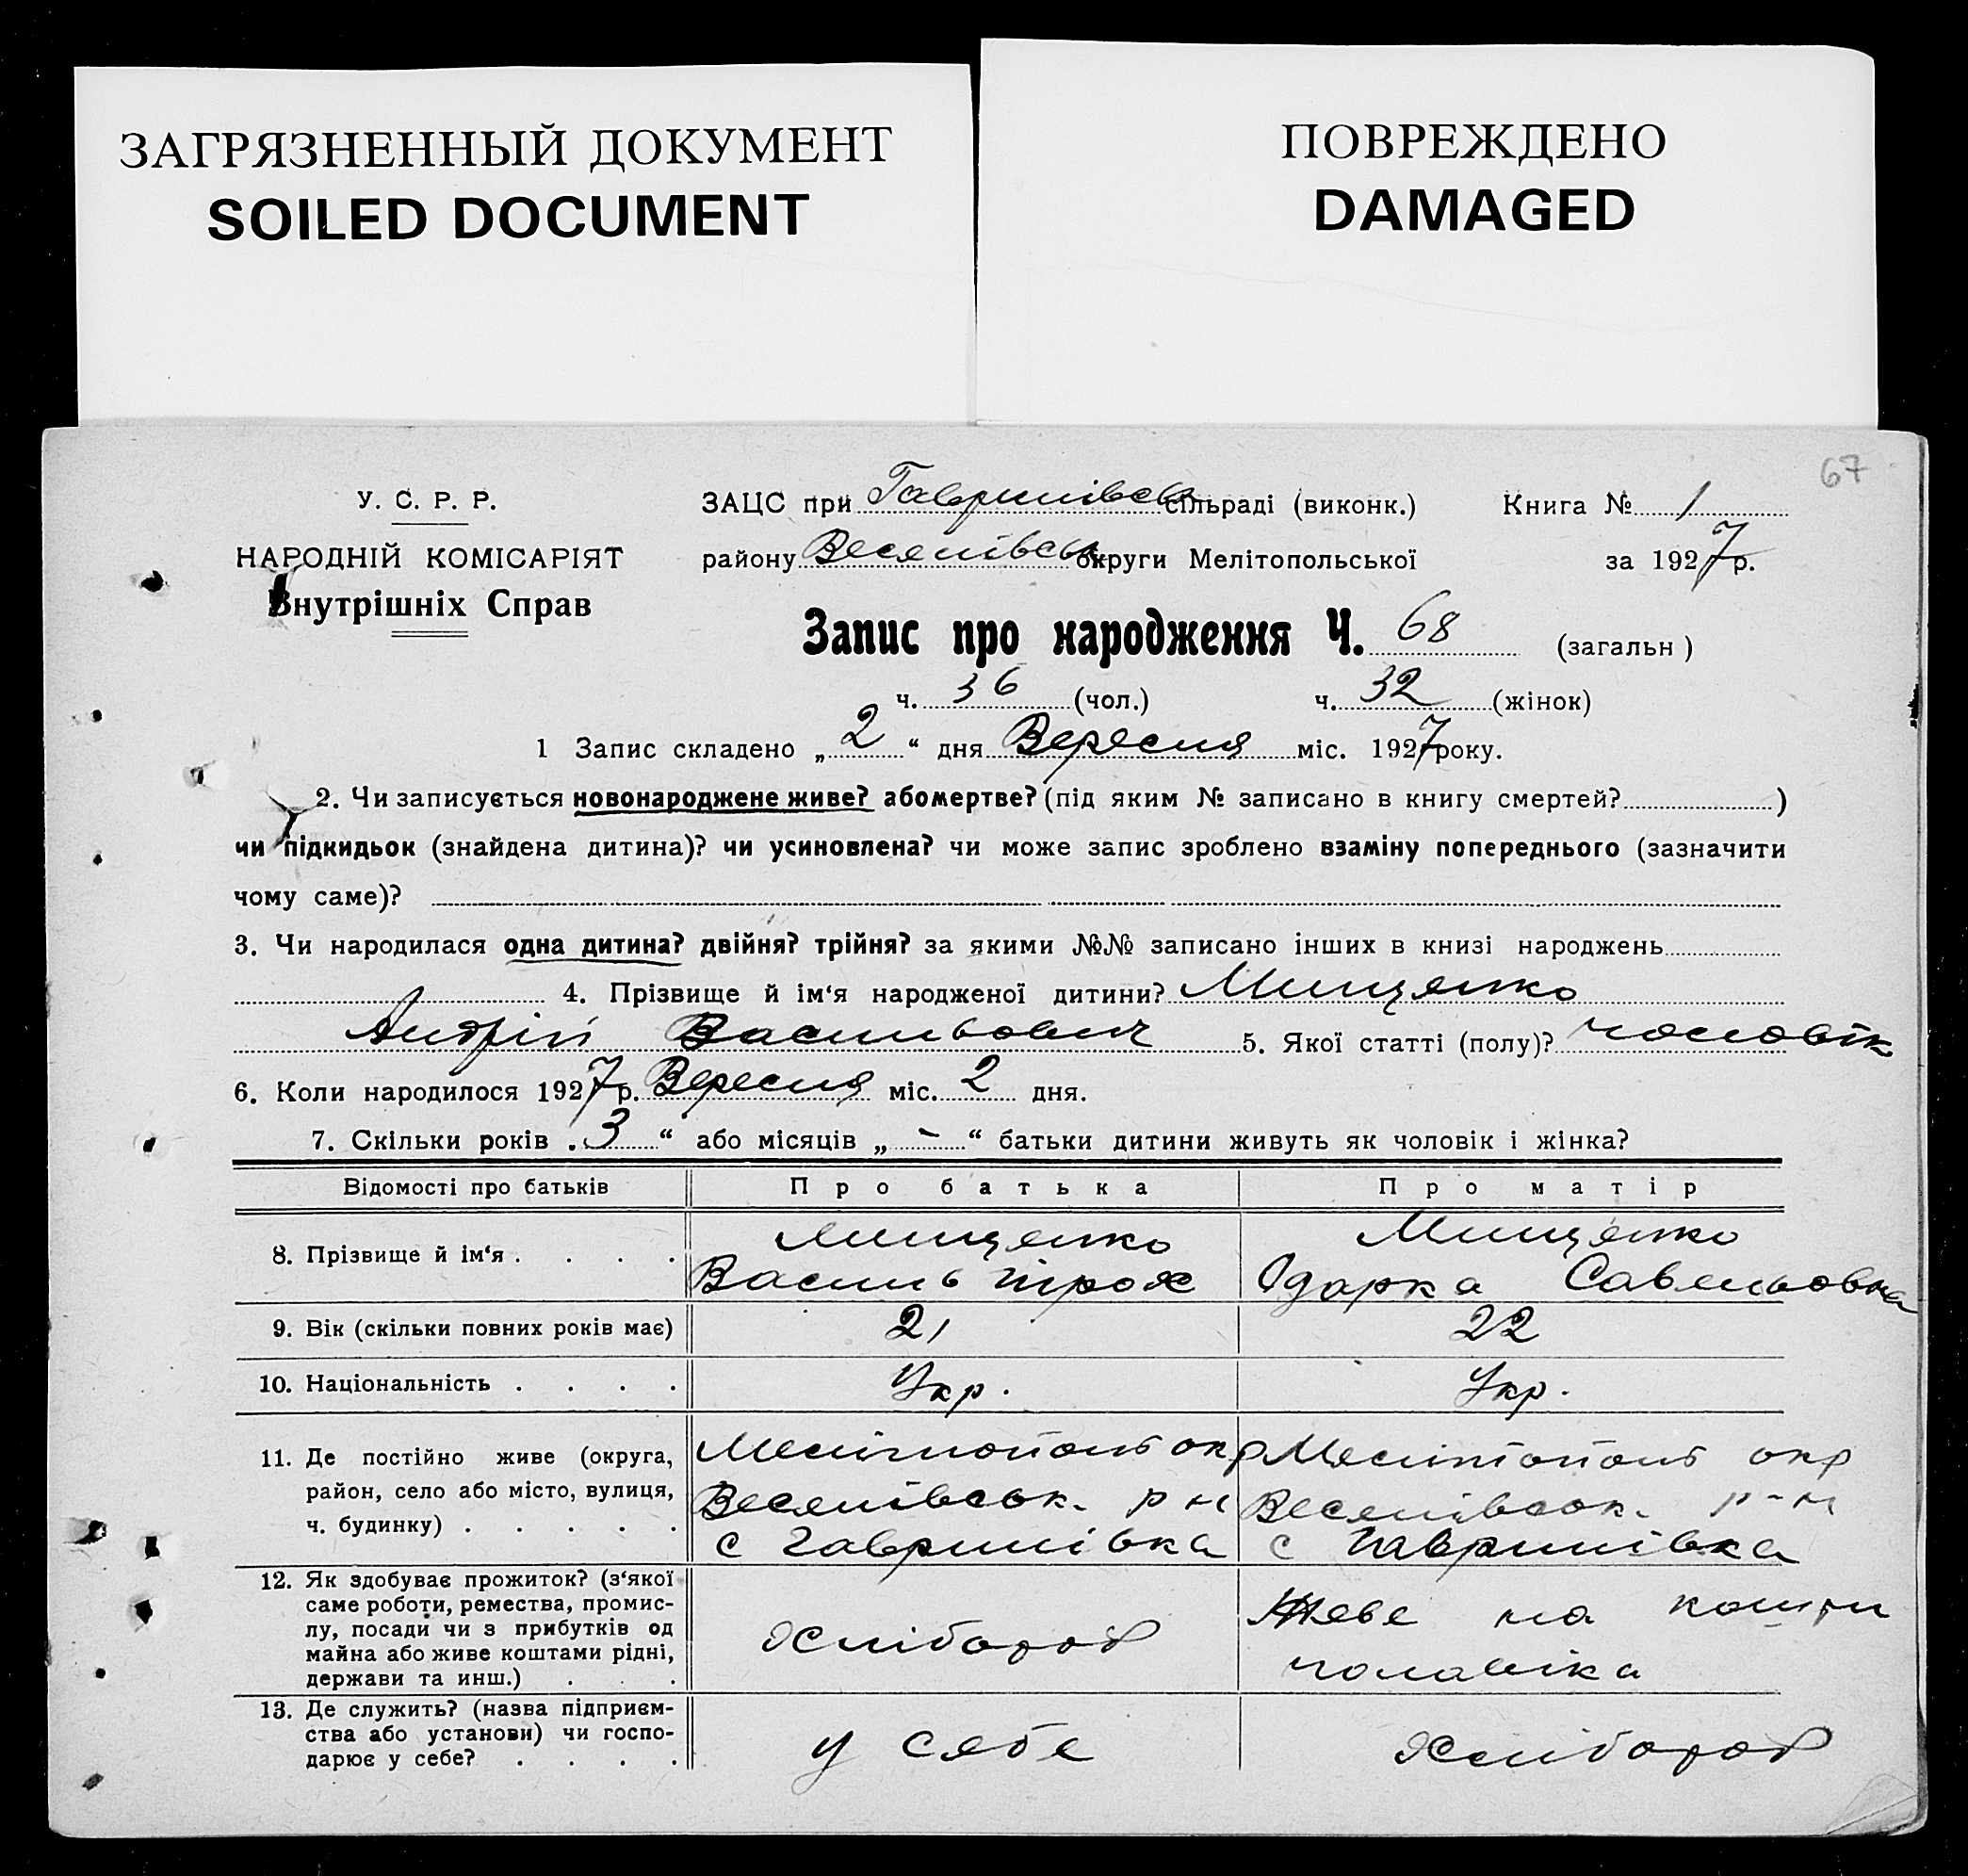 ЗАГРЯЗНЕННЫЙ ДОКУМЕНТ
SOILED DOCUMENT
ПОВРЕЖДЕНО
DAMAGED
67
У. С. Р. Р.
НАРОДНІЙ КОМІСАРІЯТ
Внутрішніх Справ
ЗАЦС при Гаврилівськ сільраді (виконк.) Книга № 1
району Веселівськ округи Мелітопольської за 1927 р.
Запис про народження Ч. 68 (загальн)
ч. 36 (чол.) ч. 32 (жінок)
1 Запис складено „2“ дня Вересня міс. 1927 року.
2. Чи записується новонароджене живе? або мертве? (під яким № записано в книгу смертей? )
чи підкидьок (знайдена дитина)? чи усиновлена? чи може запис зроблено взаміну попереднього (зазначити
чому саме)?
3. Чи народилася одна дитина? двійня? трійня? за якими №№ записано інших в книзі народжень
4. Прізвище й ім‘я народженої дитини? Мищенко
Андрій Васильович 5. Якої статті (полу)? чоловік
6. Коли народилося 1927 р. Вересня міс. 2 дня.
7. Скільки років „3“ або місяців „-“ батьки дитини живуть як чоловік і жінка?
Відомості про батьків Про батька Про матір
8. Прізвище й ім‘я . . . . Мищенко Мищенко
Василь Трох Одарка Савельовна
9. Вік (скільки повних років має) 21 22
10. Національність . . . . Укр. Укр.
11. Де постійно живе (округа, Мелітополь окр Мелітополь окр
район, село або місто, вулиця, Веселівськ. р н Веселівськ. р-н
ч. будинку) . . . . . с Гаврилівка с Гаврилівка
12. Як здобуває прожиток? (з‘якої
саме роботи, ремества, промис-
лу, посади чи з прибутків од
майна або живе коштами рідні,
держави та инш.) . . .
хлібороб
Живе на кошти
чоловіка
13. Де служить? (назва підприєм-
ства або установи) чи госпо-
дарює у себе? . . . .
у себе
хлібороб